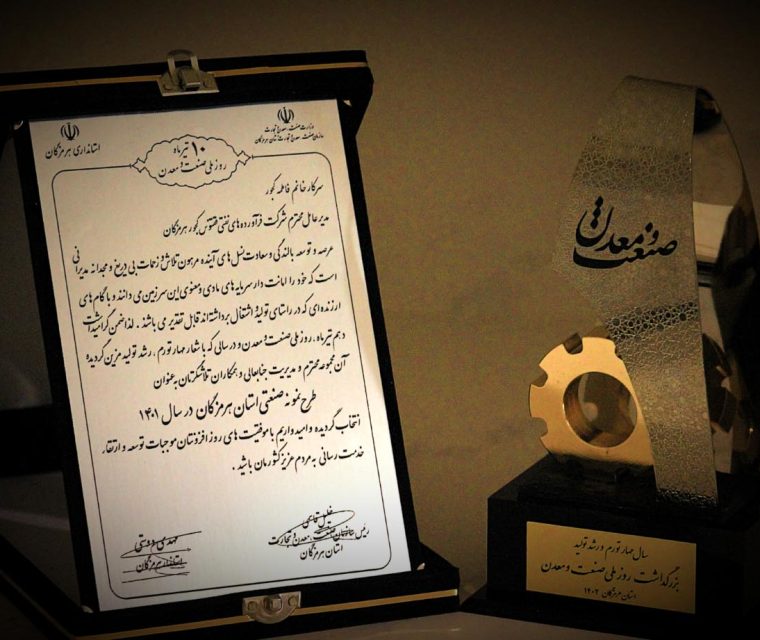 استانداری هرمزگان
وزارت صنعت، معدن و تجارت
سازمان صنعت، معدن و تجارت استان هرمزگان
۱۰ تیرماه
روز ملی صنعت و معدن
سرکار خانم فاطمه کجور
مدیرعامل محترم شرکت فرآورده های نفتی ققنوس کجور هرمزگان
عرصه و توسعه بالندگی و سعادت نسل های آینده مرهون تلاش و زحمات بی دریغ و مجدانه مدیرانی
است که خود را امانت دار سرمایه های مادی و معنوی این سرزمین می دانند و با گام های
ارزنده ای که در راستای تولید و اشتغال برداشته اند قابل تقدیر می باشند . لذا ضمن گرامیداشت
دهم تیرماه ، روز ملی صنعت و معدن و در سالی که با شعار مهار تورم ، رشد تولید مزین گردیده
آن مجموعه محترم و مدیریت جنابعالی و همکاران تلاشگرتان به عنوان
طرح نمونه صنعتی استان هرمزگان در سال ۱۴۰۱
انتخاب گردیده و امیدواریم با موفقیت های روز افزونتان موجبات توسعه و ارتقاء
خدمت رسانی به مردم عزیز کشورمان باشید .
خلیل قاسمی
رئیس سازمان صنعت، معدن و تجارت
استان هرمزگان
مهدی دوستی
استاندار هرمزگان
صنعت و معدن
سال مهار تورم و رشد تولید
بزرگداشت روز ملی صنعت و معدن
استان هرمزگان ۱۴۰۲